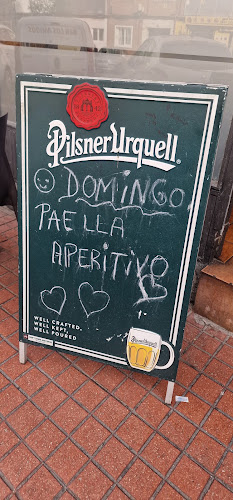 Pilsner Urquell
DOMINGO
PAELLA
APERITIVO
WELL CRAFTED,
WELL KEPT,
WELL POURED